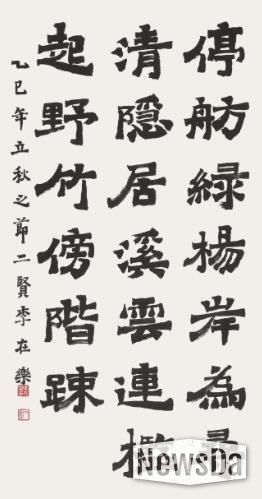 停舫綠楊岸為
清隱居溪雲連檻
起野竹傍階踈
乙巳年立秋之節二賢李在樂
NewsDa